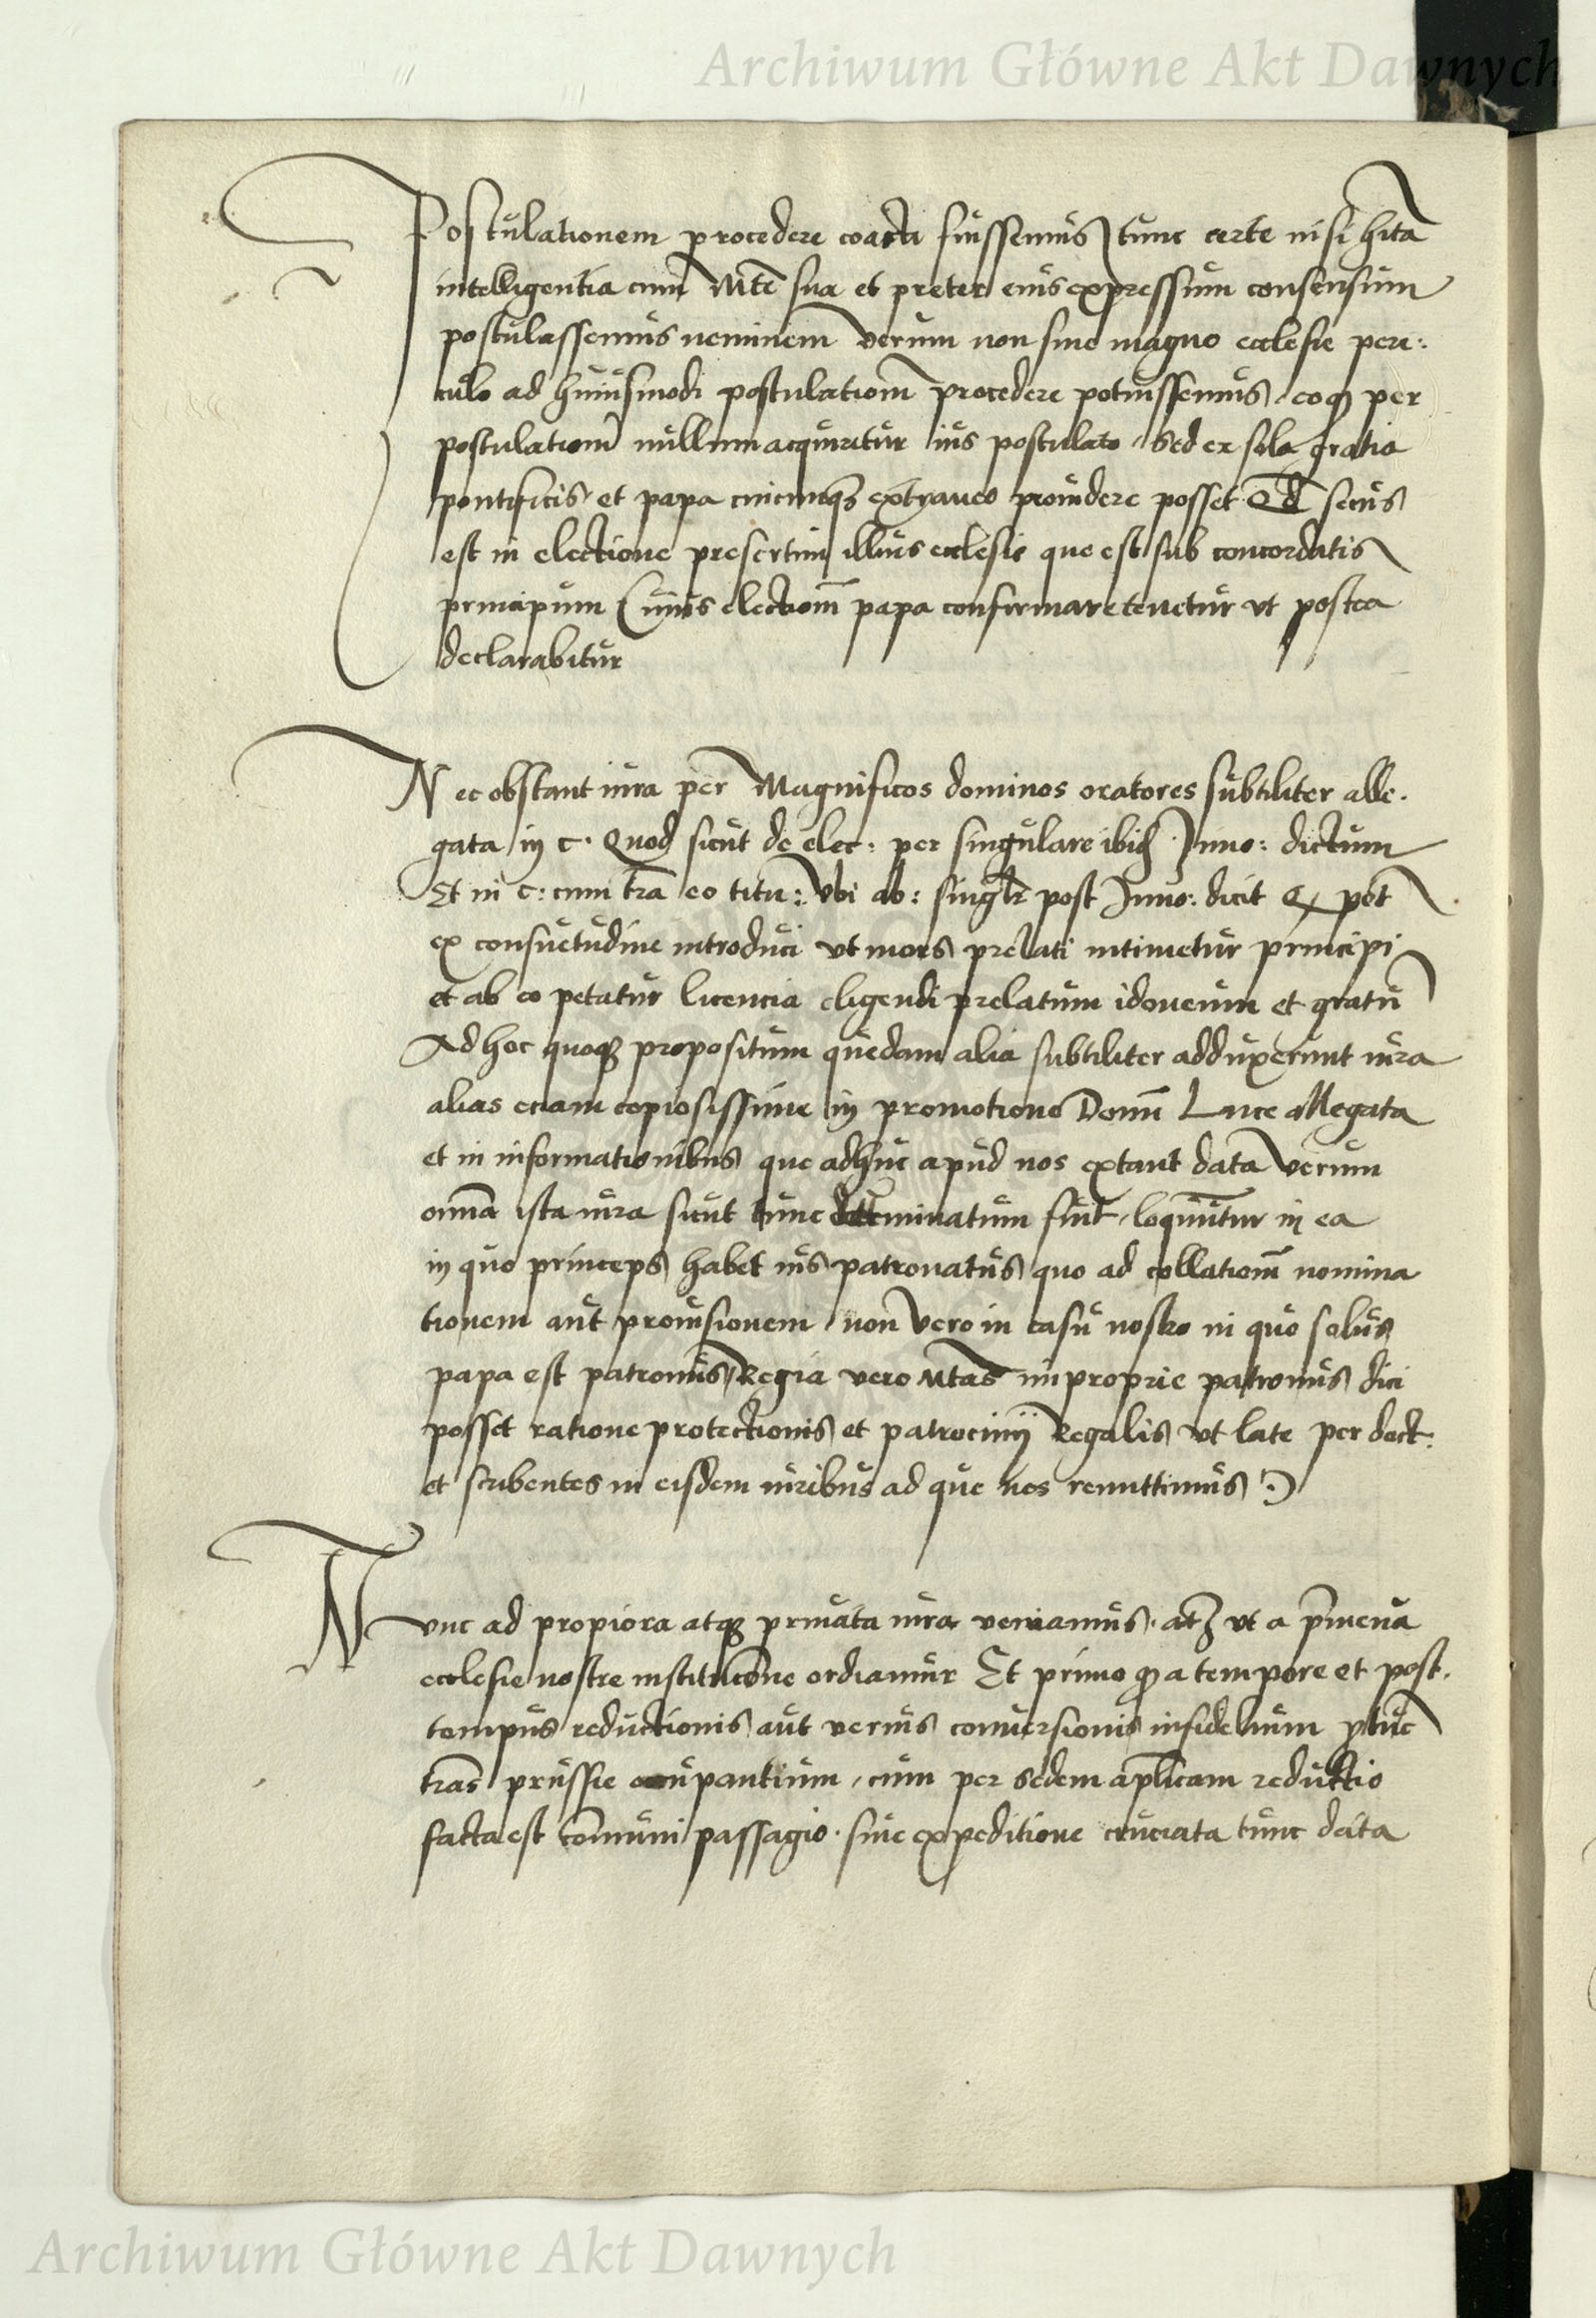 Archiwum Główne Akt Dawnych
Postulationem procedere coacti fuissemus tunc certe nisi hita
intelligentia cum Mte sua et preter eius expressum consensum
postulassemus neminem verum non sine magno ecclesie peri:
culo ad huiusmodi postulationem procedere potuissemus, eoq per
postulationem nullum acquiritur ius postulato, Sed ex sola gratia
pontificis, et papa cuicumq extraneo prouidere posset Qd secus
est in electione presertim illius ecclesie que est sub concordatis
principum Cuius electionem papa confirmare tenetur vt postea
declarabitur
Nec obstant iura per Magnificos dominos oratores subtiliter alle.
gata in c. Quod sicut de elec: per singulare ibid Inno: dictum
Et in c: cum tra eo titu: Vbi ab: singlr post Inno: dicit Q pot
ex consuetudine introduci vt mors prelati intimetur principi
et ab eo petatur licencia eligendi prelatum idoneum et gratu
Ad hoc quoq propositum quedam alia subtiliter adduxerunt iura
alias eciam copiosissime in promotione Domi Luce allegata
et in informationibus que adhuc apud nos extant data Verum
omnia ista iura sicut tunc determinatum fuit, loquuntur in ea
in quo princeps habet ius patronatus quo ad collationem nomina
tionem aut prouisionem, non vero in casu nostro in quo solus
papa est patronus, Regia vero Mtas improprie patronus dici
posset ratione protectionis et patrocinij Regalis vt late per doct:
et scribentes in eisdem iuribus ad que nos remittimus
Nunc ad propiora atq priuata iura veniamus. atq vt a primeua
ecclesie nostre institucione ordiamur Et primo q a tempore et post.
tempus reductionis aut verius conuersionis infidelium ptuc
tras prussie occupantium, cum per sedem aplicam reductio
facta est communi passagio. siue expeditione cruciata tunc data
Archiwum Główne Akt Dawnych